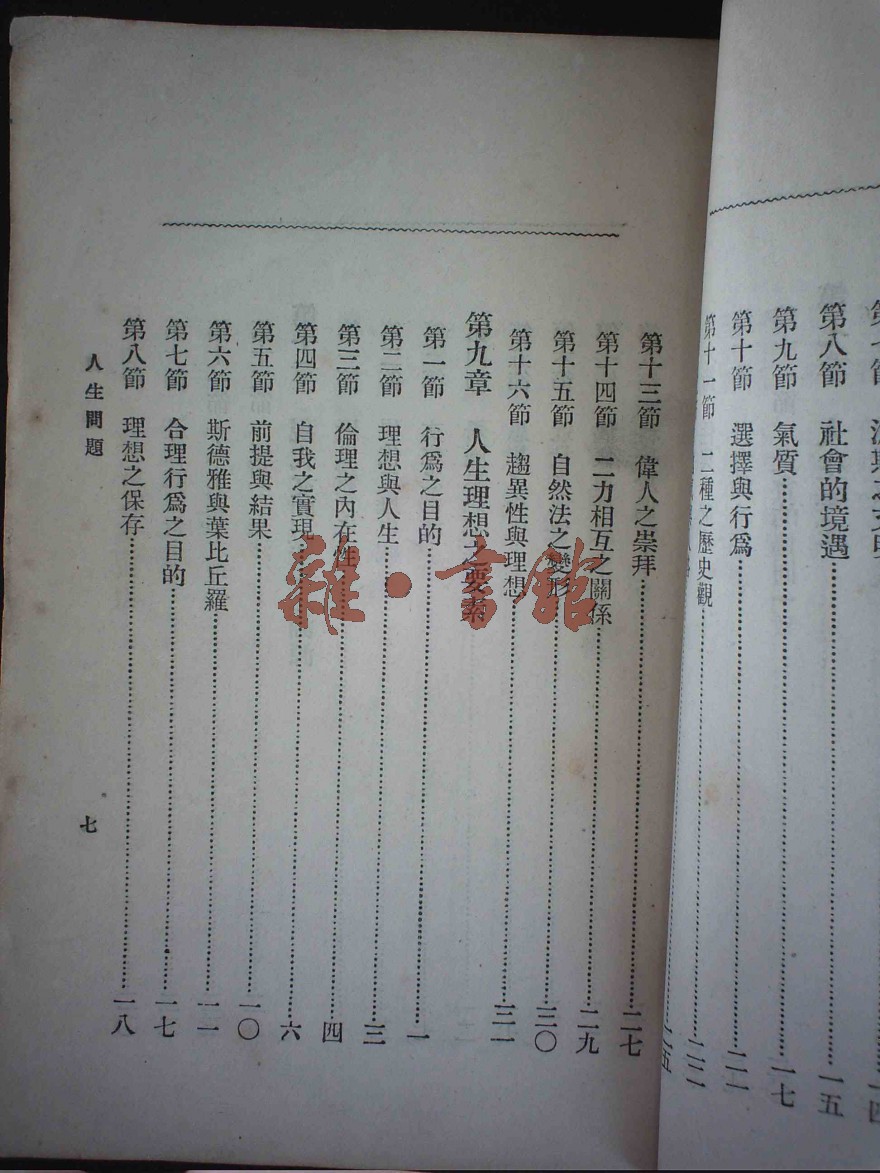 第八節　社會的境遇………一五
第九節　氣質………一七
第十節　選擇與行爲………二一
第十一節　二種之歷史觀………二二
第十三節　偉人之崇拜………二七
第十四節　二力相互之關係………二九
第十五節　自然法之變形………三〇
第十六節　趨異性與理想………三一
第九章　人生理想之要素
第一節　行爲之目的………一
第二節　理想與人生………三
第三節　倫理之內在性………四
第四節　自我之實現………六
第五節　前提與結果………一〇
第六節　斯德雅與葉比丘羅………一一
第七節　合理行爲之目的………一七
第八節　理想之保存………一八
人生問題
七
雜·書館